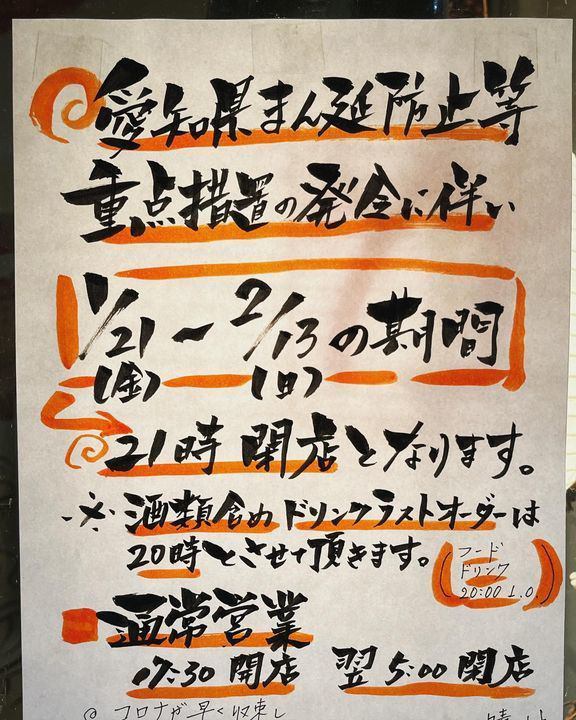 愛知県まん延防止等
重点措置の発令に伴い
1/21(金)~2/13(日)の期間
21時閉店となります。
※酒類含めドリンクラストオーダーは
20時とさせて頂きます。
(フード
ドリンク
20:00 L.O.)
通常営業
17:30 開店 翌5:00 閉店
@コロナが早く収束し